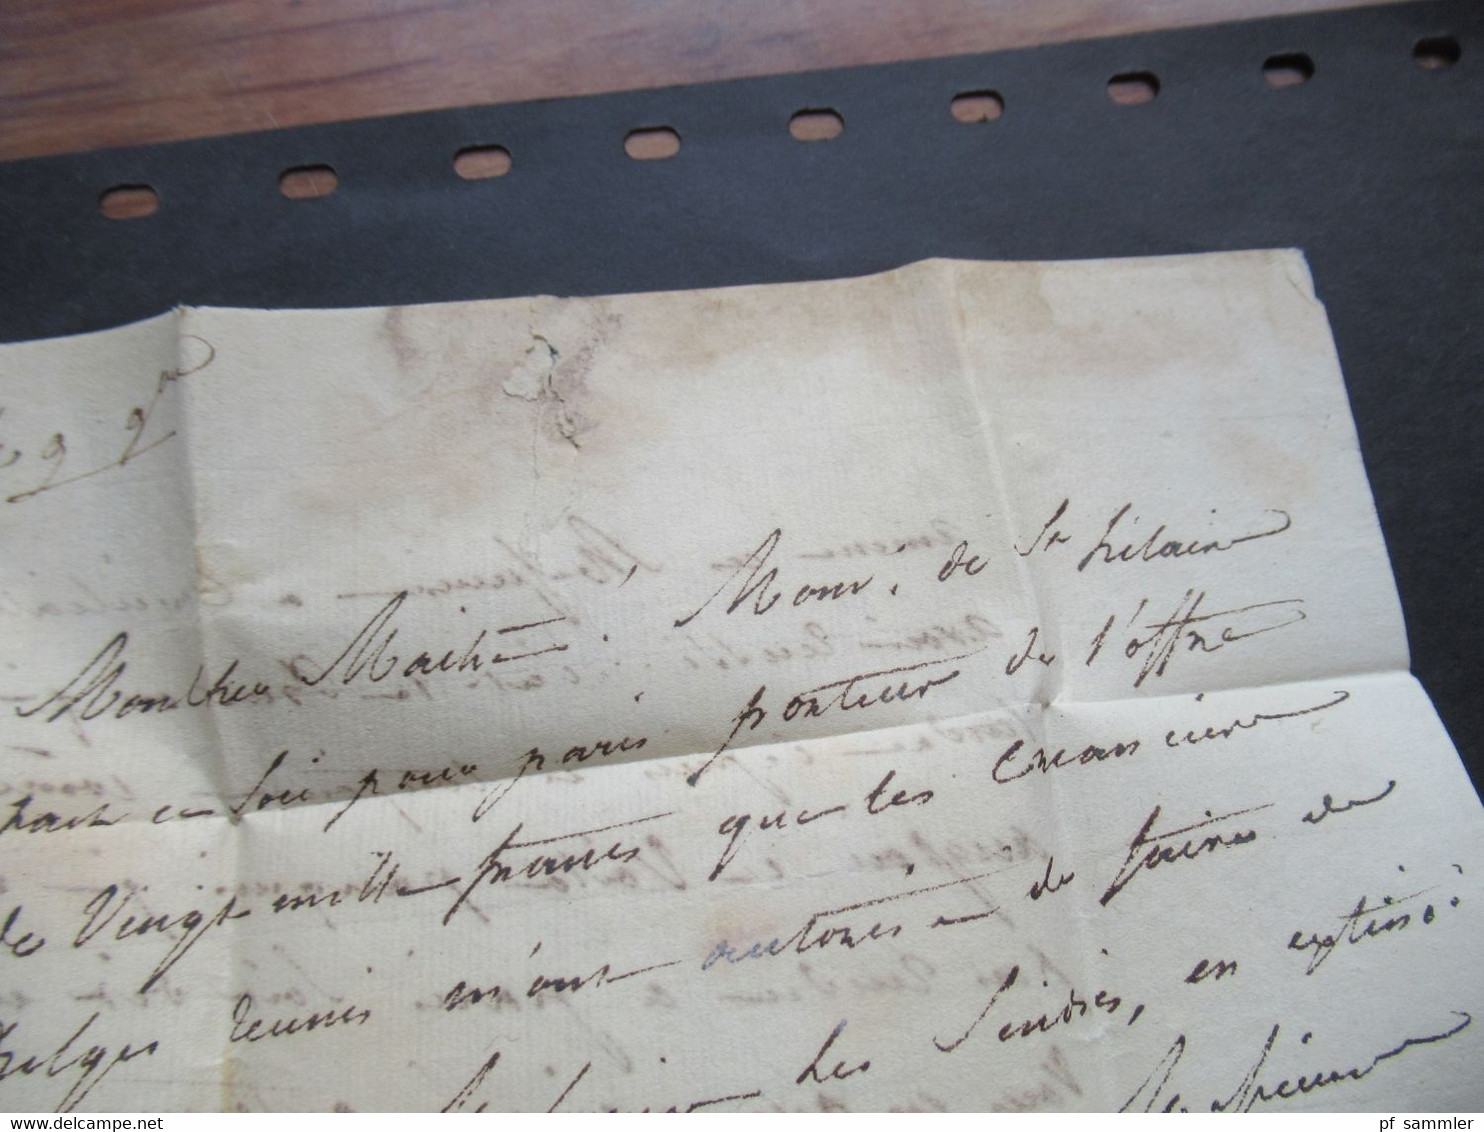 Mon cher Maitre, Monr. de St hilaire
part ce Soir pour paris porteur de l'offre
de Vingt mille francs que les creanciers
belges reunis m'ont autorisé de faire
les Sindics, en extinc
Monsieur
delcampe.net
pf_sammler